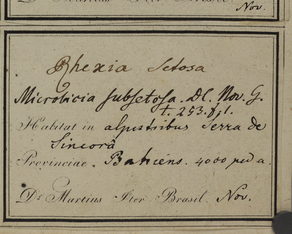 Nov.
Rhexia setosa
Microlicia subsetosa. DC. Nov. G.
t. 253. f. 1.
Habitat in alpestribus Serra de
Sincorá
Provinciae Bahiens. 4000 ped a.
Dr Martius Iter Brasil. Nov.